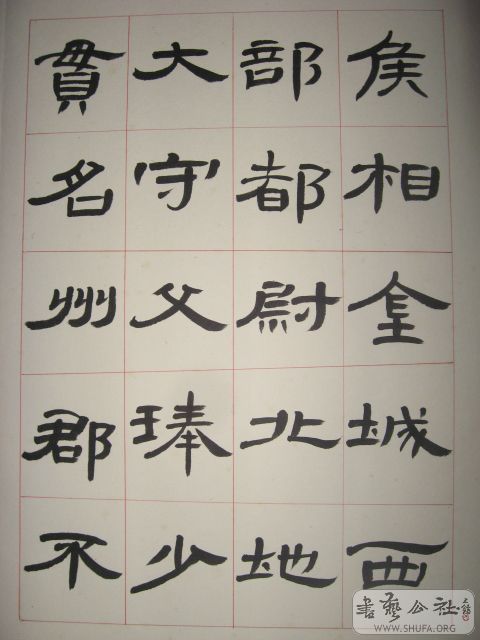 侯相金城西
部都尉北地
大守父琫少
貫名州郡不
书艺公社
WWW.SHUFA.ORG